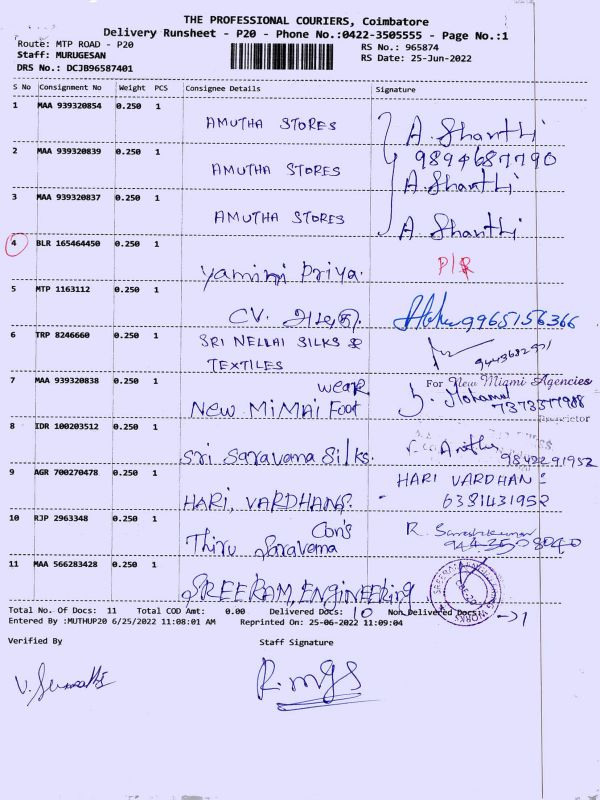 THE PROFESSIONAL COURIERS, Coimbatore
Delivery Runsheet - P20 - Phone No.:0422-3505555 - Page No.:1
Route: MTP ROAD - P20
RS No.: 965874
Staff: MURUGESAN
RS Date: 25-Jun-2022
DRS No.: DCJB96587401
S No Consignment No Weight PCS Consignee Details Signature
1 MAA 939320854 0.250 1 AMUTHA STORES A. Shanthi
9894687790
2 MAA 939320839 0.250 1 AMUTHA STORES A. Shanthi
3 MAA 939320837 0.250 1 AMUTHA STORES A Shanthi
4 BLR 165464450 0.250 1 Yamini Priya.
5 MTP 1163112 0.250 1 CV. 9965156366
6 TRP 8246660 0.250 1 SRI NELLAI SILKS &
TEXTILES
7 MAA 939320838 0.250 1 wear For New Miami Agencies
New MiMAi Foot 7373577988
Proprietor
8 IDR 100203512 0.250 1 Sri Saravama Silks. 9842291952
9 AGR 700270478 0.250 1 HARI VARDHAN:
HARI, VARDHANS. 6381431952
10 RJP 2963348 0.250 1 Con's
Thiru Saravama
11 MAA 566283428 0.250 1
SREERAM, ENGINEERing
Total No. Of Docs: 11 Total COD Amt: 0.00 Delivered Docs: 10 Non Delivered Docs: ->1
Entered By :MUTHUP20 6/25/2022 11:08:01 AM Reprinted On: 25-06-2022 11:09:04
Verified By Staff Signature